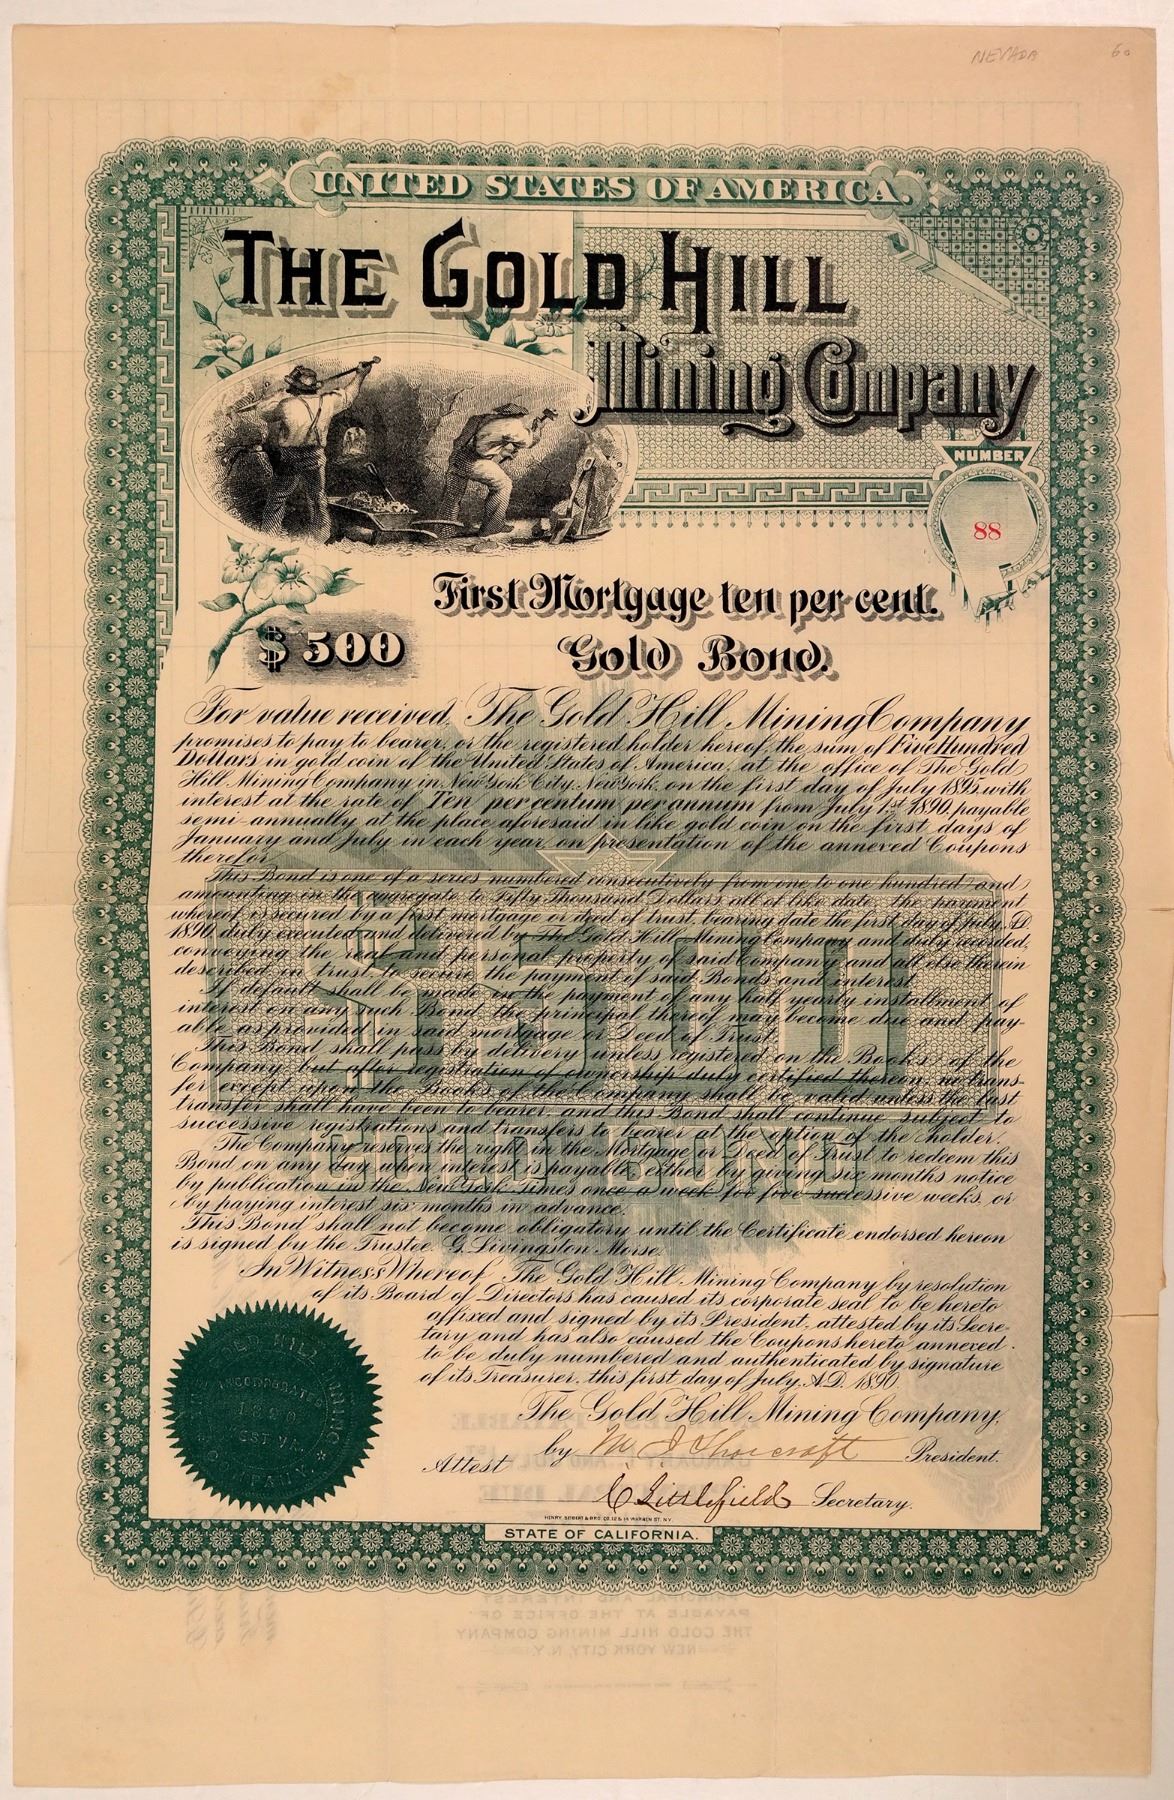 NEVADA 60
UNITED STATES OF AMERICA.
THE GOLD HILL
Mining Company
NUMBER
88
First Mortgage ten per cent.
$500
Gold Bond.
For value received, The Gold Hill Mining Company
promises to pay to bearer, or the registered holder hereof, the sum of Five Hundred
Dollars in gold coin of the United States of America, at the office of The Gold
Hill Mining Company in New York City, New York, on the first day of July 1895, with
interest at the rate of Ten per centum per annum from July 1st 1890, payable
semi-annually at the place aforesaid in like gold coin on the first days of
January and July in each year, on presentation of the annexed Coupons
therefor.
This Bond is one of a series numbered consecutively from one to one hundred and
amounting in the aggregate to Fifty Thousand Dollars all of like date the payment
whereof is secured by a first mortgage or deed of trust, bearing date the first day of July, A.D.
1890, duly executed and delivered by The Gold Hill Mining Company and duly recorded,
conveying the real and personal property of said Company and all else therein
described in trust to secure the payment of said Bonds and interest.
If default shall be made in the payment of any half yearly installment of
interest on any such Bond the principal thereof may become due and pay-
able as provided in said mortgage or Deed of Trust.
This Bond shall pass by delivery unless registered on the Books of the
Company but after registration of ownership duly certified thereon, no trans-
fer except upon the Books of the Company shall be valid unless the last
transfer shall have been to bearer, and this Bond shall continue subject to
successive registrations and transfers to bearer at the option of the holder.
The Company reserves the right in the Mortgage or Deed of Trust to redeem this
Bond on any day when interest is payable, either by giving six months notice
by publication in the New York Times once a week for five successive weeks, or
by paying interest six months in advance.
This Bond shall not become obligatory until the Certificate endorsed hereon
is signed by the Trustee, G. Livingston Morse.
$500
GOLD BOND
In Witness Whereof, The Gold Hill Mining Company by resolution
of its Board of Directors has caused its corporate seal to be hereto
affixed and signed by its President, attested by its Secre-
tary and has also caused the Coupons hereto annexed
to be duly numbered and authenticated by signature
of its Treasurer, this first day of July, A.D. 1890.
The Gold Hill Mining Company,
by M J Shoecraft President.
Attest
C Littlefield Secretary.
INCORPORATED
1890
WEST VA.
HENRY SEIBERT & BRO. CO. 12 & 14 WARREN ST. N.Y.
STATE OF CALIFORNIA.
PRINCIPAL AND INTEREST
PAYABLE AT THE OFFICE OF
THE GOLD HILL MINING COMPANY
NEW YORK CITY, N.Y.